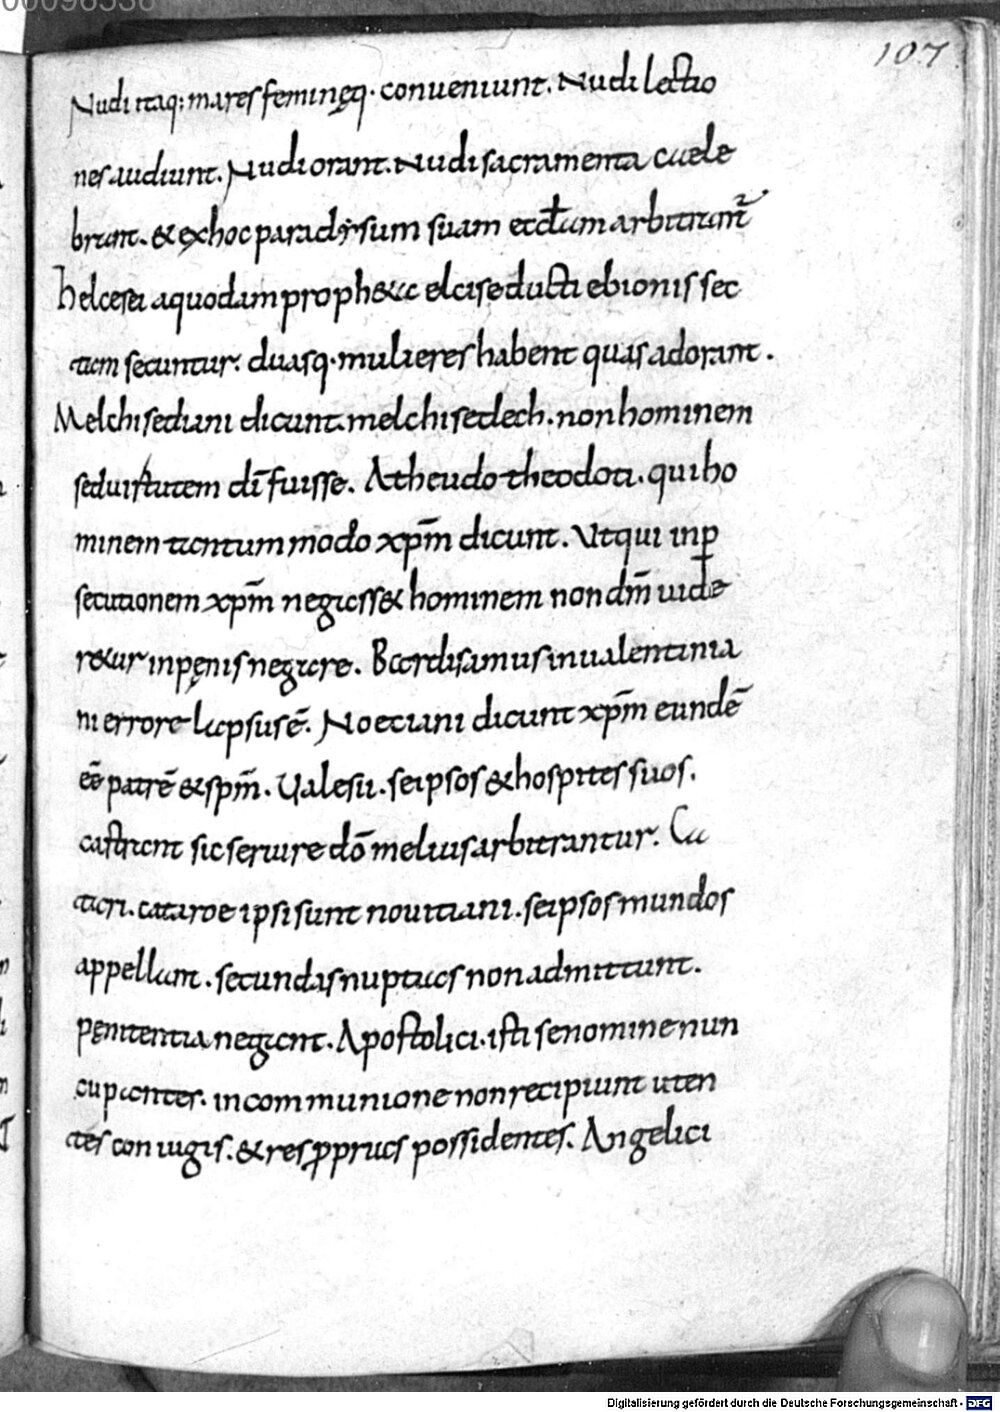 107
Nudi itaq; mares feminęq· conueniunt. Nudi lectio
nes audiunt. Nudi orant. Nudi sacramenta caele
brant. & ex hoc paradysum suam eccłam arbitrant᷑
helcesei a quodam propheta elci seducti ebionis sec
tam secuntur. duasq· mulieres habent quas adorant.
Melchisediani dicunt. melchisedech. non hominem
sed uirtutem dī fuisse. A theudo theodoti. qui ho
minem tantum modo xp̄m dicunt. Vt qui in ꝑ
secutionem xp̄m negass& hominem non dm̄ uide
r&ur in pęnis negare. Bardisamus in ualentinia
ni errore lapsus ē. Noetiani dicunt xp̄m eundē
eē patrē & sp̄m. Ualesii. se ipsos & hospites suos.
castrant sic seruire dō melius arbitrantur. Ca
tari. cataroe ipsi sunt nouitiani. se ipsos mundos
appellant. secundas nuptias non admittunt.
pęnitentia negant. Apostolici. isti se nomine nun
cupantes. in communione non recipiunt uten
tes coniugis. & res ꝓprias possidentes. Angelici
Digitalisierung gefördert durch die Deutsche Forschungsgemeinschaft - DFG